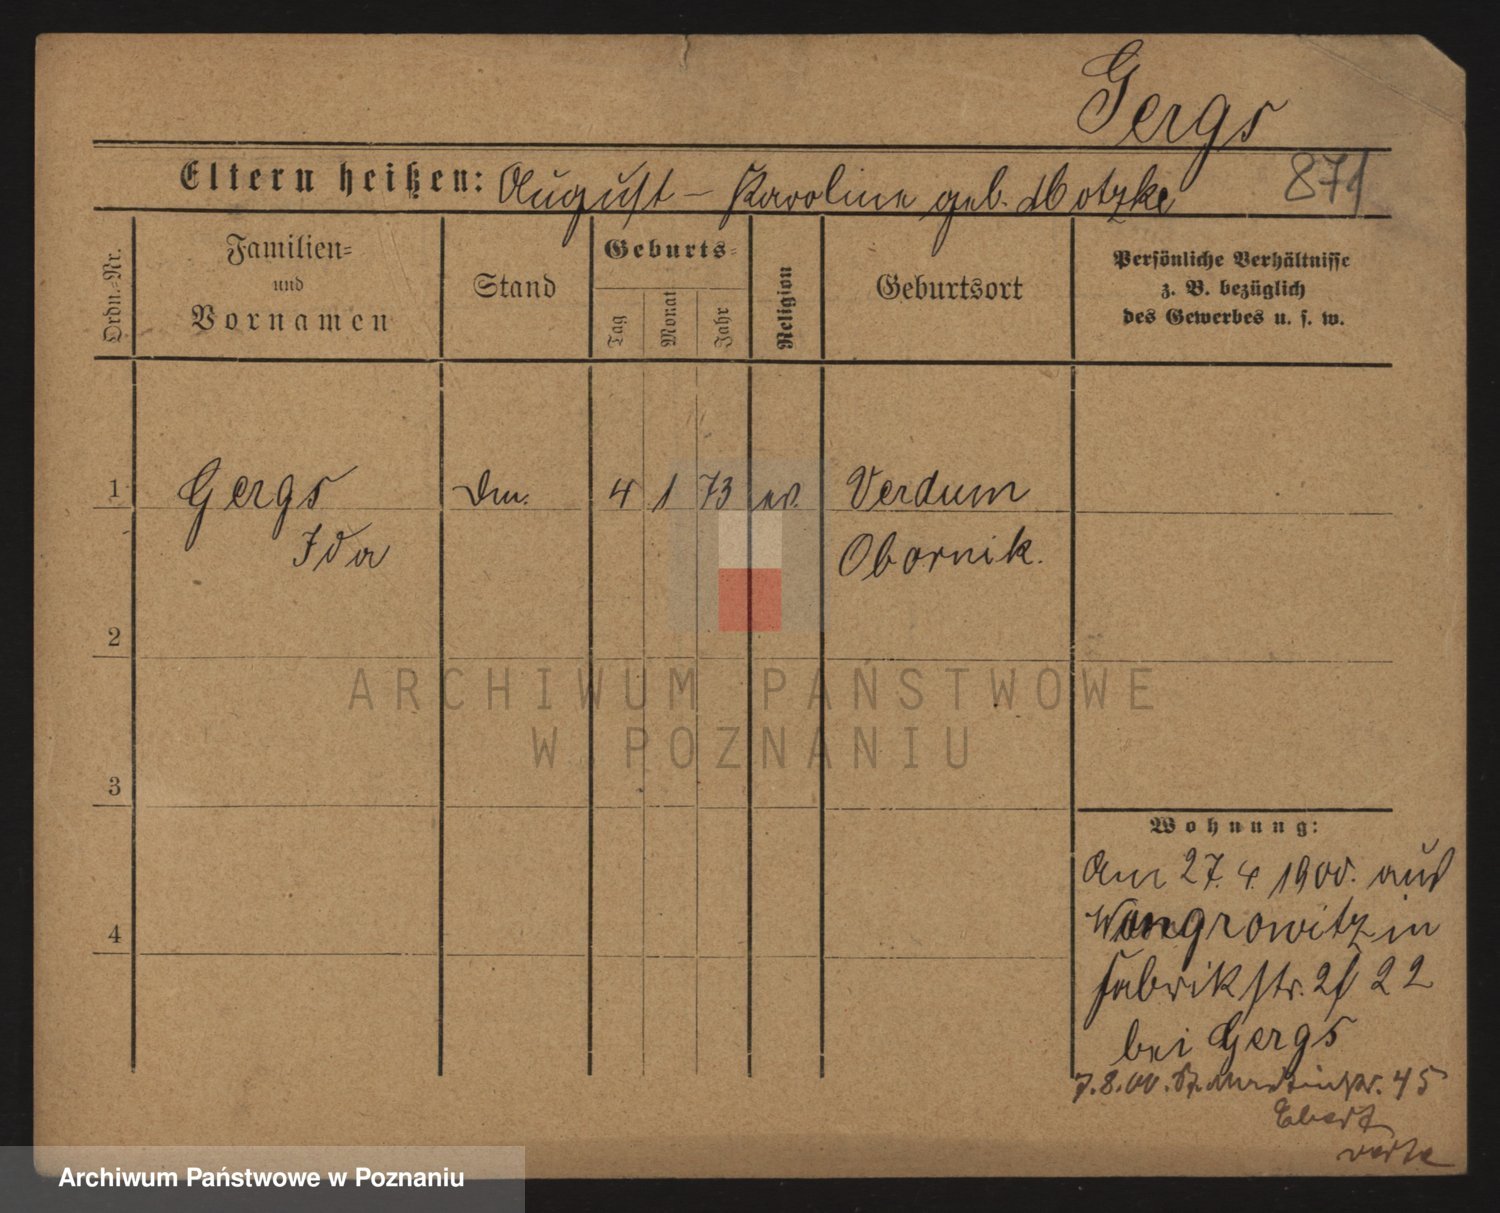 Gergs
Eltern heißen: August – Karoline geb. Motzke
871
Ordn.-Nr.
Familien-
und
Vornamen
Stand
Geburts-
Tag
Monat
Jahr
Religion
Geburtsort
Persönliche Verhältnisse
z. B. bezüglich
des Gewerbes u. s. w.
1 Gergs 4 1 73 ev. Verdum
Ida Obornik.
2
ARCHIWUM PAŃSTWOWE
W POZNANIU
3
Wohnung:
Am 27. 4. 1900. aus
4 Wongrowitz in
Fabrikstr. 22
bei Gergs
7.8.00. St. Martinstr. 45
Ebert
verte
Archiwum Państwowe w Poznaniu